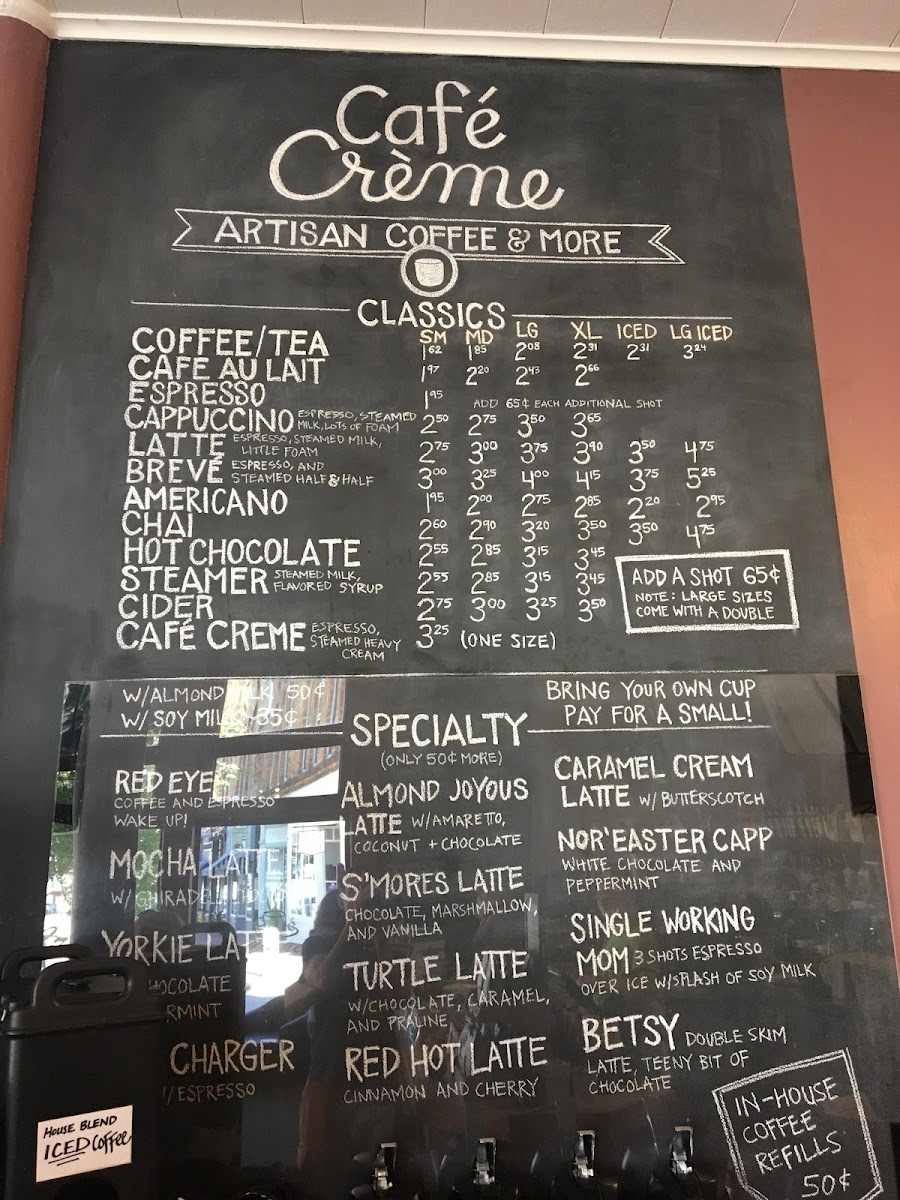 Café
Crème
ARTISAN COFFEE & MORE
CLASSICS
SM MD LG XL ICED LG ICED
COFFEE/TEA 1.62 1.85 2.08 2.31 2.31 3.24
CAFE AU LAIT 1.97 2.20 2.43 2.66
ESPRESSO 1.95 ADD 65¢ EACH ADDITIONAL SHOT
CAPPUCCINO ESPRESSO, STEAMED MILK, LOTS OF FOAM 2.50 2.75 3.50 3.65
LATTE ESPRESSO, STEAMED MILK, LITTLE FOAM 2.75 3.00 3.75 3.90 3.50 4.75
BREVÉ ESPRESSO, AND STEAMED HALF & HALF 3.00 3.25 4.00 4.15 3.75 5.25
AMERICANO 1.95 2.00 2.75 2.85 2.20 2.95
CHAI 2.60 2.90 3.20 3.50 3.50 4.75
HOT CHOCOLATE 2.55 2.85 3.15 3.45
STEAMER STEAMED MILK, FLAVORED SYRUP 2.55 2.85 3.15 3.45
CIDER 2.75 3.00 3.25 3.50
CAFÉ CREME ESPRESSO, STEAMED HEAVY CREAM 3.25 (ONE SIZE)
ADD A SHOT 65¢
NOTE: LARGE SIZES
COME WITH A DOUBLE
W/ALMOND MILK 50¢
W/SOY MILK 35¢
BRING YOUR OWN CUP
PAY FOR A SMALL!
SPECIALTY
(ONLY 50¢ MORE)
RED EYE
COFFEE AND ESPRESSO
WAKE UP!
MOCHA LATTE
W/GHIRADELLI
YORKIE LAT
HOCOLATE
RMINT
CHARGER
W/ESPRESSO
ALMOND JOYOUS
LATTE W/AMARETTO,
COCONUT + CHOCOLATE
S'MORES LATTE
CHOCOLATE, MARSHMALLOW,
AND VANILLA
TURTLE LATTE
W/CHOCOLATE, CARAMEL,
AND PRALINE
RED HOT LATTE
CINNAMON AND CHERRY
CARAMEL CREAM
LATTE W/ BUTTERSCOTCH
NOR'EASTER CAPP
WHITE CHOCOLATE AND
PEPPERMINT
SINGLE WORKING
MOM 3 SHOTS ESPRESSO
OVER ICE W/SPLASH OF SOY MILK
BETSY DOUBLE SKIM
LATTE, TEENY BIT OF
CHOCOLATE
IN-HOUSE
COFFEE
REFILLS
50¢
HOUSE BLEND
ICED COFFEE